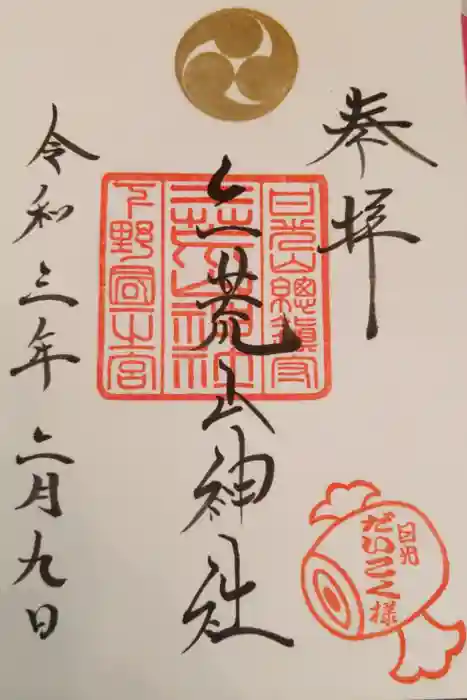 奉拝
日光山總鎮守
二荒山神社
下野國一之宮
二荒山神社
令和三年六月九日
日光
だいこく様